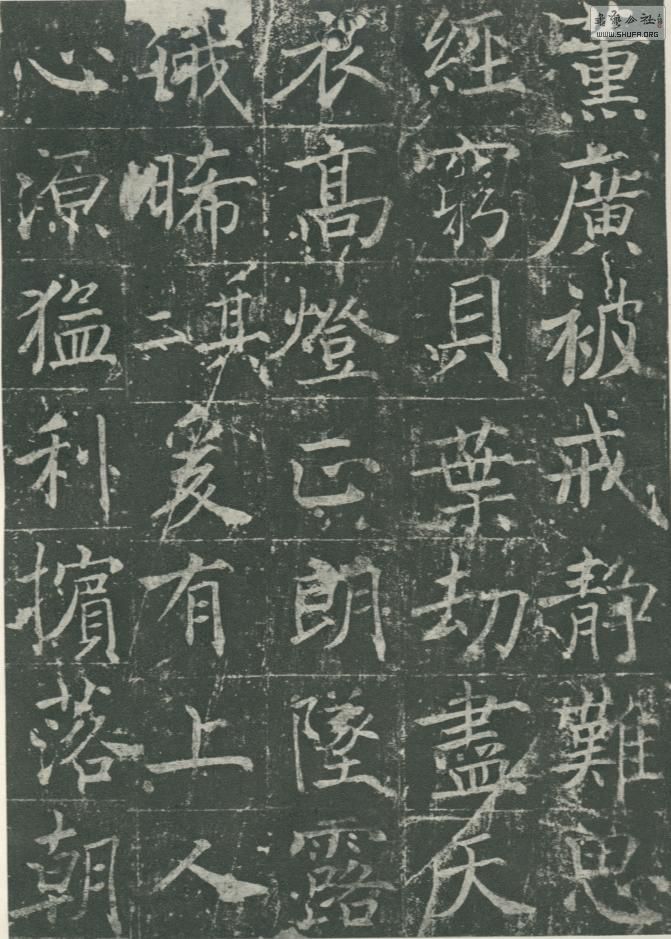 薰廣被戒靜難思
經窮貝葉劫盡天
衣高燈正朗墜露
俄晞二其爰有上人
心源猛利擯落朝
書藝公社
WWW.SHUFA.ORG